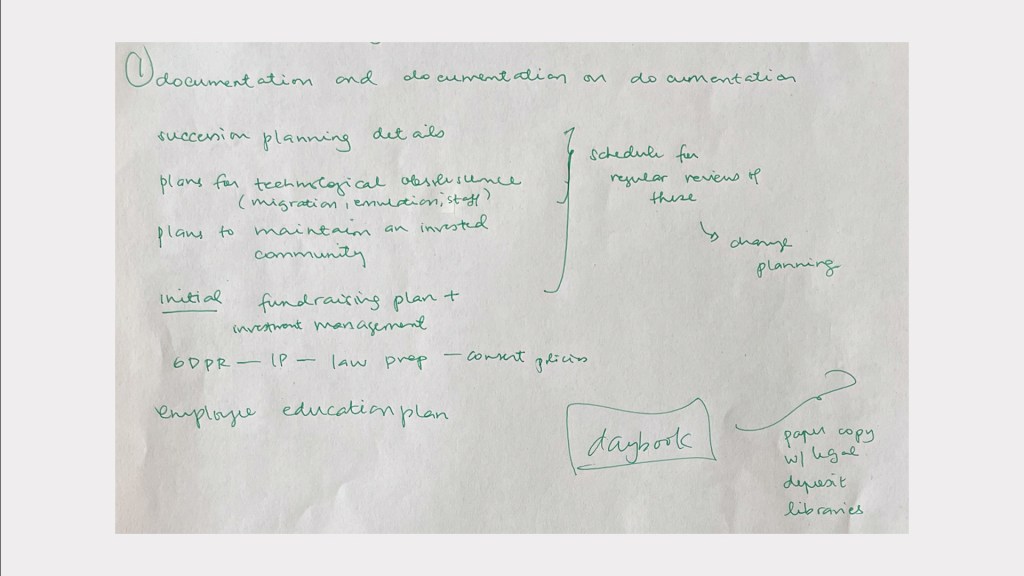 ① documentation and documentation on documentation
succession planning details
plans for technological obsolescence
(migration, emulation, staff)
plans to maintain an invested
community
initial fundraising plan +
investment management
GDPR — IP — law prep — consent policies
employee education plan
schedule for
regular review of
these
↳ change
planning
daybook
paper copy
w/ legal
deposit
libraries